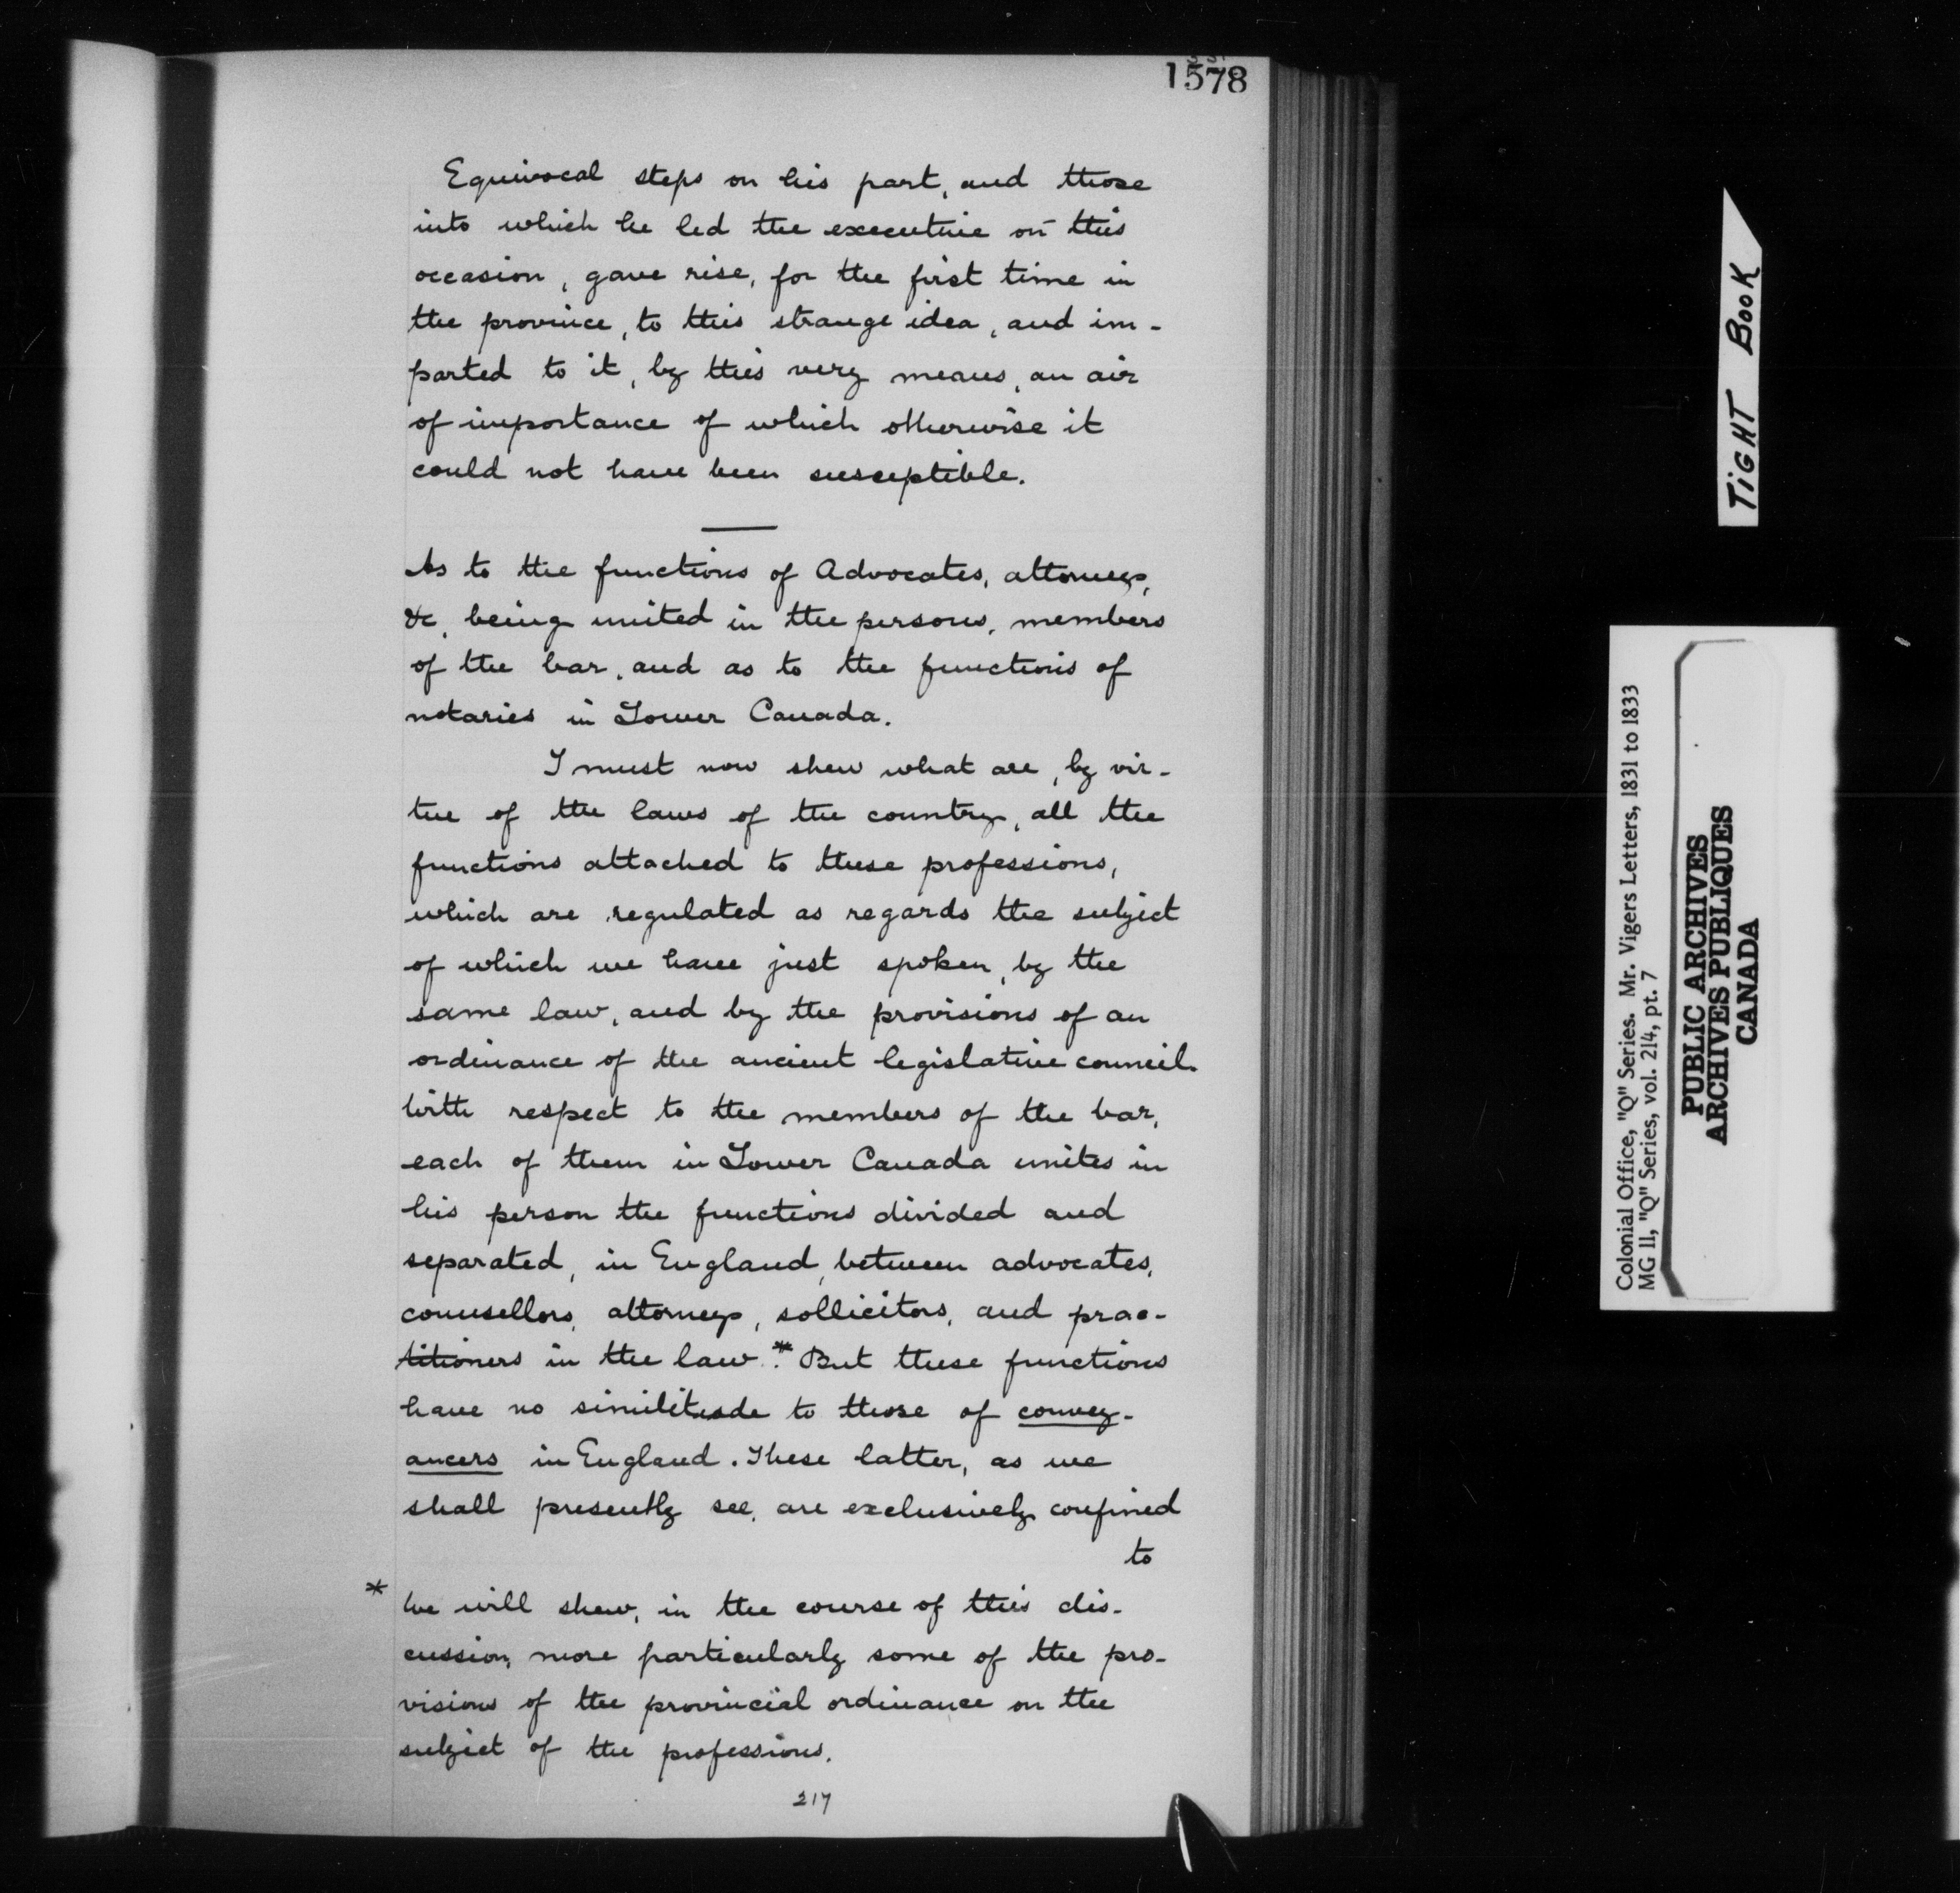 1578
Equivocal steps on his part, and those
into which he led the executive on this
occasion, gave rise, for the first time in
the province, to this strange idea, and im-
parted to it, by this very means, an air
of importance of which otherwise it
could not have been susceptible.
As to the functions of Advocates, attorneys,
&c, being united in the persons, members
of the bar, and as to the functions of
notaries in Lower Canada.
I must now shew what are, by vir-
tue of the laws of the country, all the
functions attached to these professions,
which are regulated as regards the subject
of which we have just spoken, by the
same law, and by the provisions of an
ordinance of the ancient legislative council.
With respect to the members of the bar,
each of them in Lower Canada unites in
his person the functions divided and
separated, in England, between advocates,
counsellors, attorneys, sollicitors, and prac-
titioners in the law.* But these functions
have no similitude to those of convey-
ancers in England. These latter, as we
shall presently see, are exclusively confined
to
* We will shew, in the course of this dis-
cussion, more particularly some of the pro-
visions of the provincial ordinance on the
subject of the professions.
217
TiGHT BOOK
Colonial Office, "Q" Series. Mr. Vigers Letters, 1831 to 1833
MG 11, "Q" Series, vol. 214, pt. 7
PUBLIC ARCHIVES
ARCHIVES PUBLIQUES
CANADA